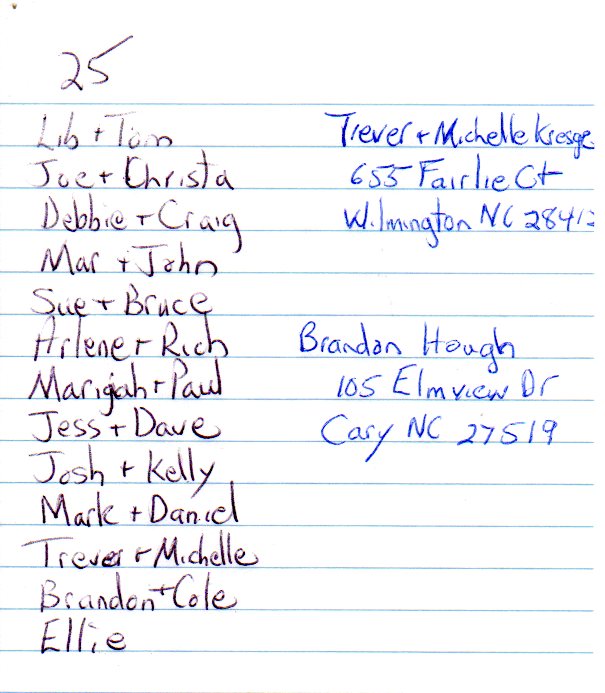 25
Lib + Tom
Joe + Christa
Debbie + Craig
Mar + John
Sue + Bruce
Arlene + Rich
Marijah + Paul
Jess + Dave
Josh + Kelly
Mark + Daniel
Trever + Michelle
Brandon + Cole
Ellie
Trever + Michelle Kresge
655 Fairlie Ct
Wilmington NC 28412
Brandon Hough
105 Elmview Dr
Cary NC 27519